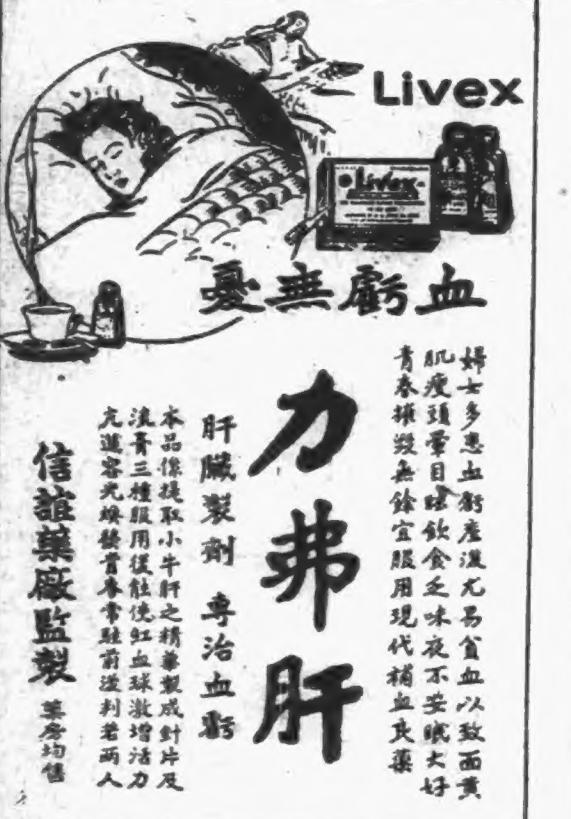 Livex
Livex
血虧無憂
婦女多患血虧產後尤易貧血以致面黃
肌瘦頭暈目眩飲食乏味夜不安眠大好
青春摧毀無餘宜服用現代補血良藥
力弗肝
肝臟製劑 專治血虧
本品係提取小牛肝之精華製成針片及
流膏三種服用後能使紅血球激增活力
亢進容光煥發青春常駐前後判若兩人
信誼藥廠監製 藥房均售